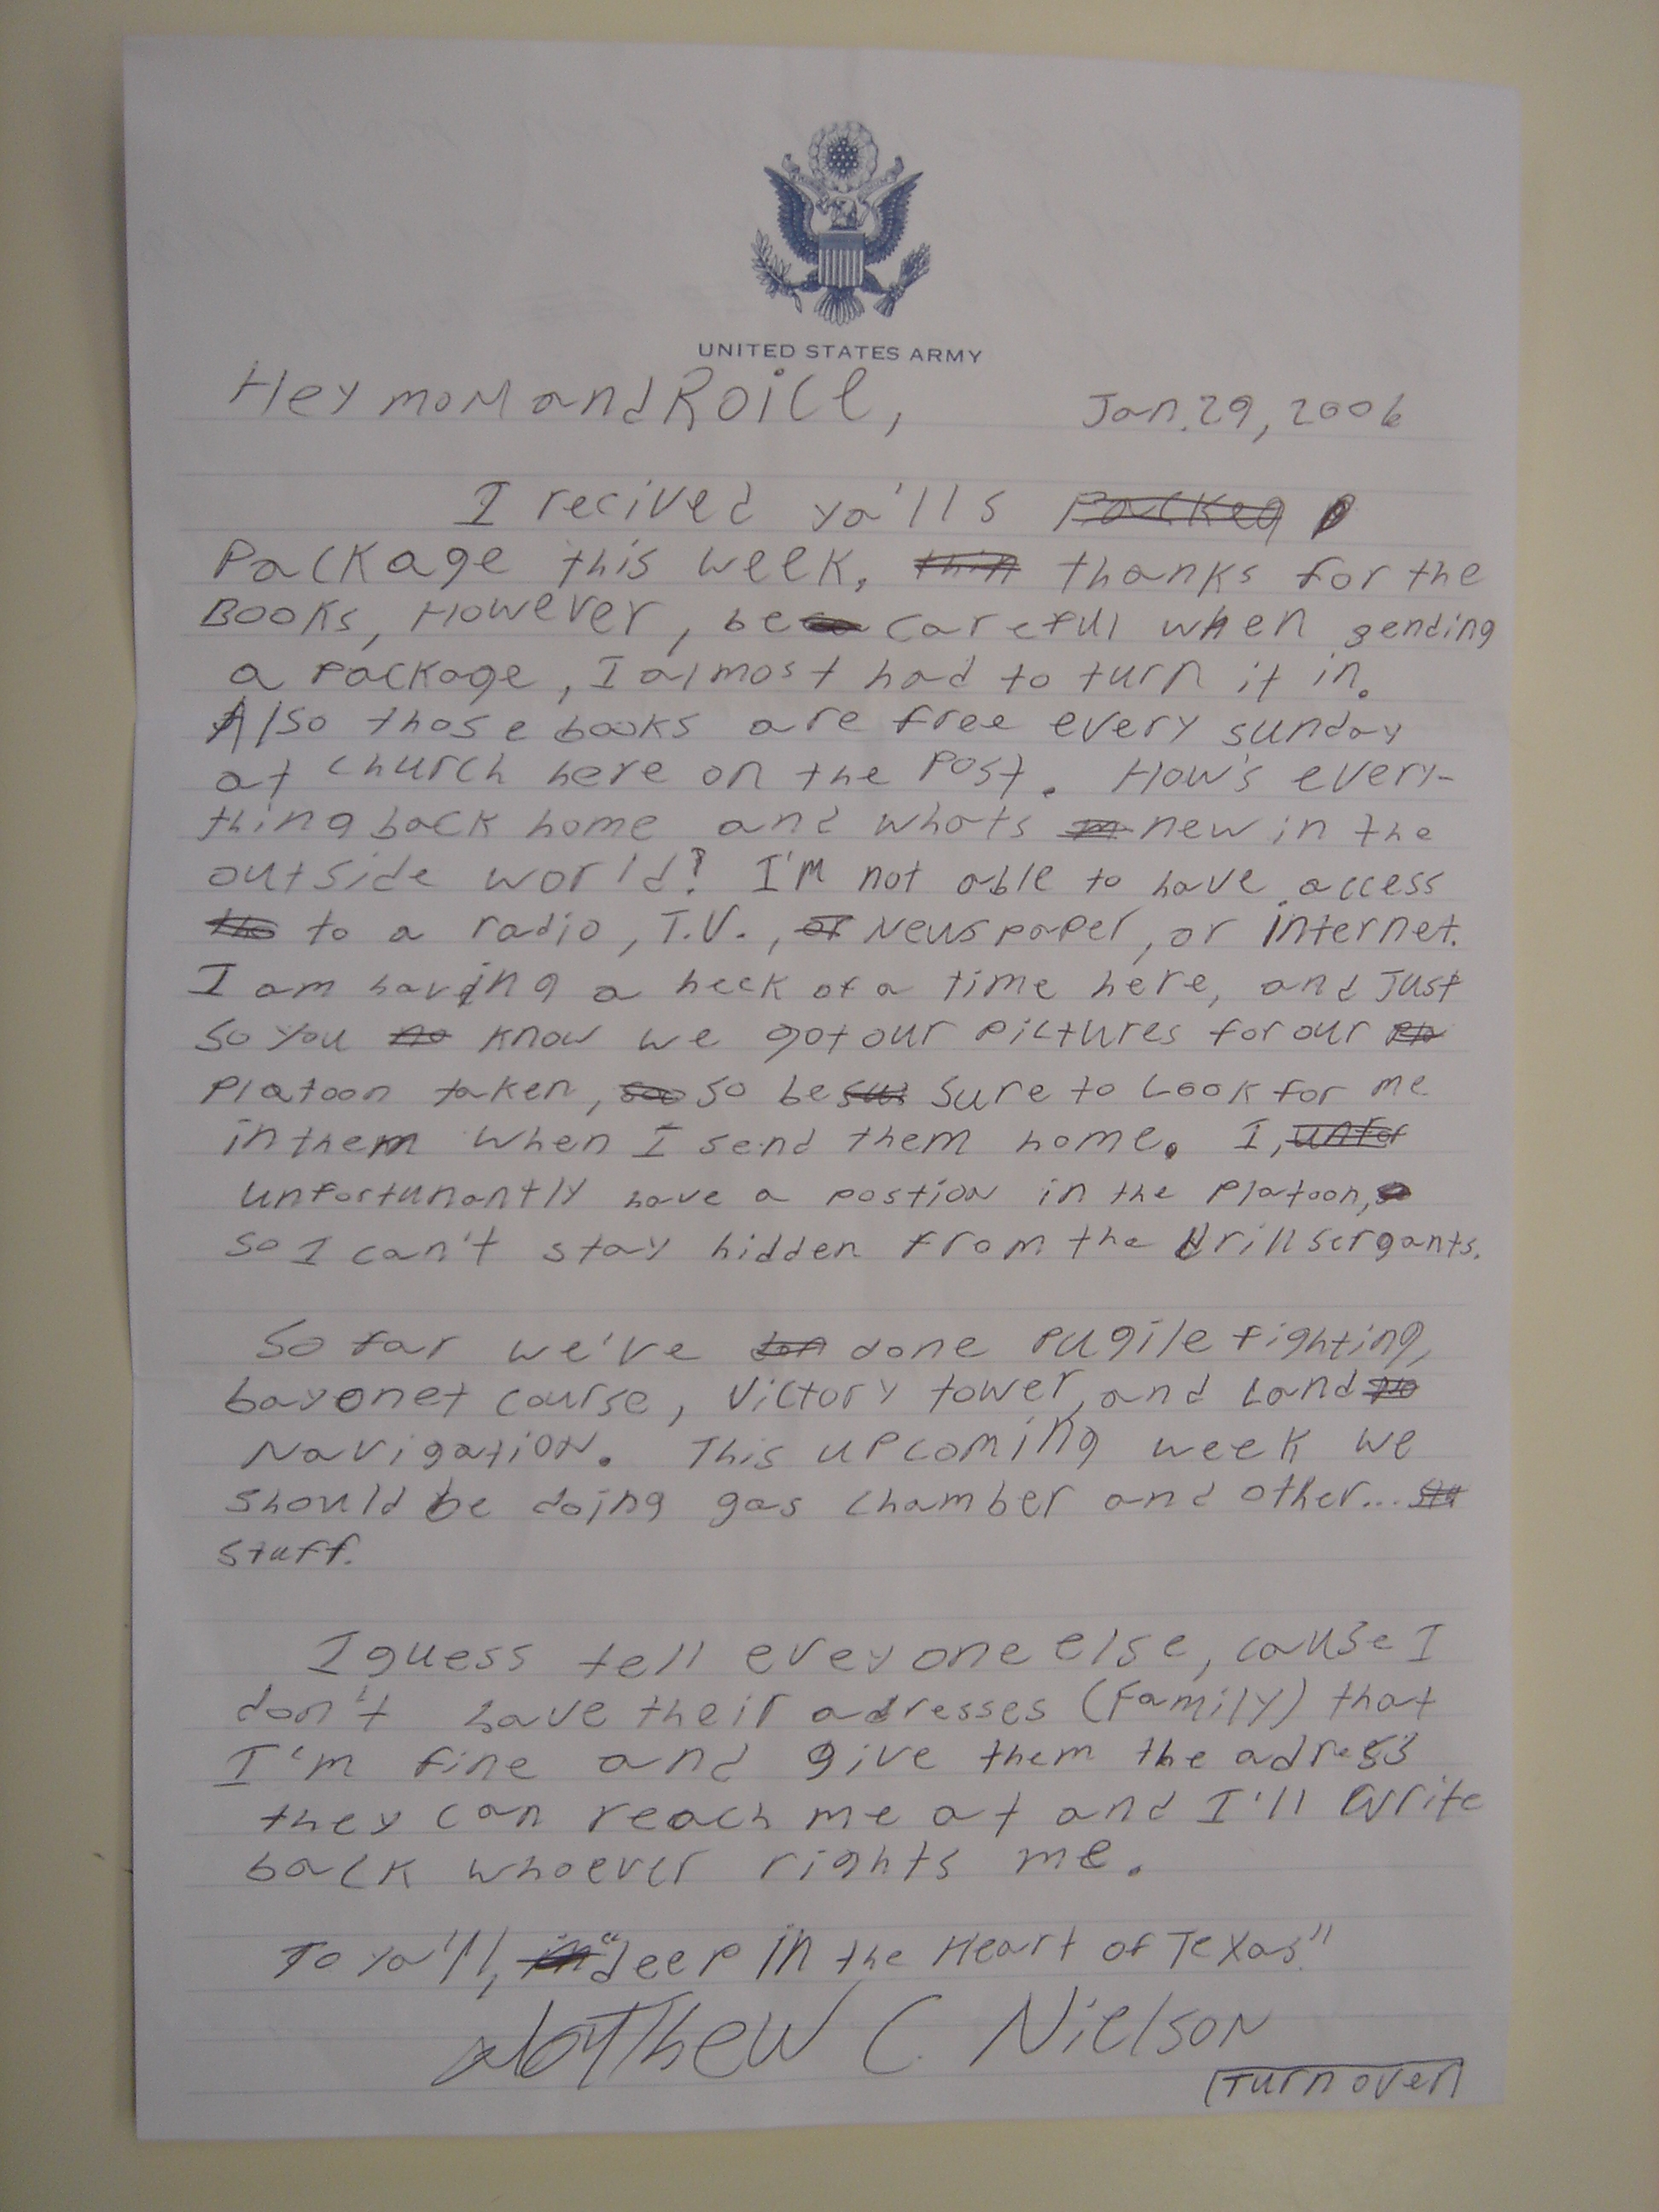 UNITED STATES ARMY
Hey mom and Roice,
Jan. 29, 2006
I recived ya'lls packeg p
Package this week, thin thanks for the
Books, However, be careful when sending
a package, I almost had to turn it in.
Also those books are free every sunday
at church here on the Post. How's every-
thing back home and whats m new in the
outside world? I'm not able to have access
tho to a radio, T.V., or Newspaper, or internet.
I am having a heck of a time here, and Just
so you no know we got our pictures for our pla
Platoon taken, soo so be sur sure to Look for me
in them when I send them home. I, unfor
unfortunantly have a postion in the Platoon,
so I can't stay hidden from the Drill sergants.
So far we've don done pugile fighting,
bayonet course, Victory tower, and Land no
Navigation. This upcoming week we
should be doing gas chamber and other... stu
stuff.
I guess tell eveyone else, cause I
don't have their adresses (family) that
I'm fine and give them the adress
they can reach me at and I'll write
back whoever rights me.
To ya'll, in "deep in the Heart of Texas"
Matthew C. Nielson
(Turn over)